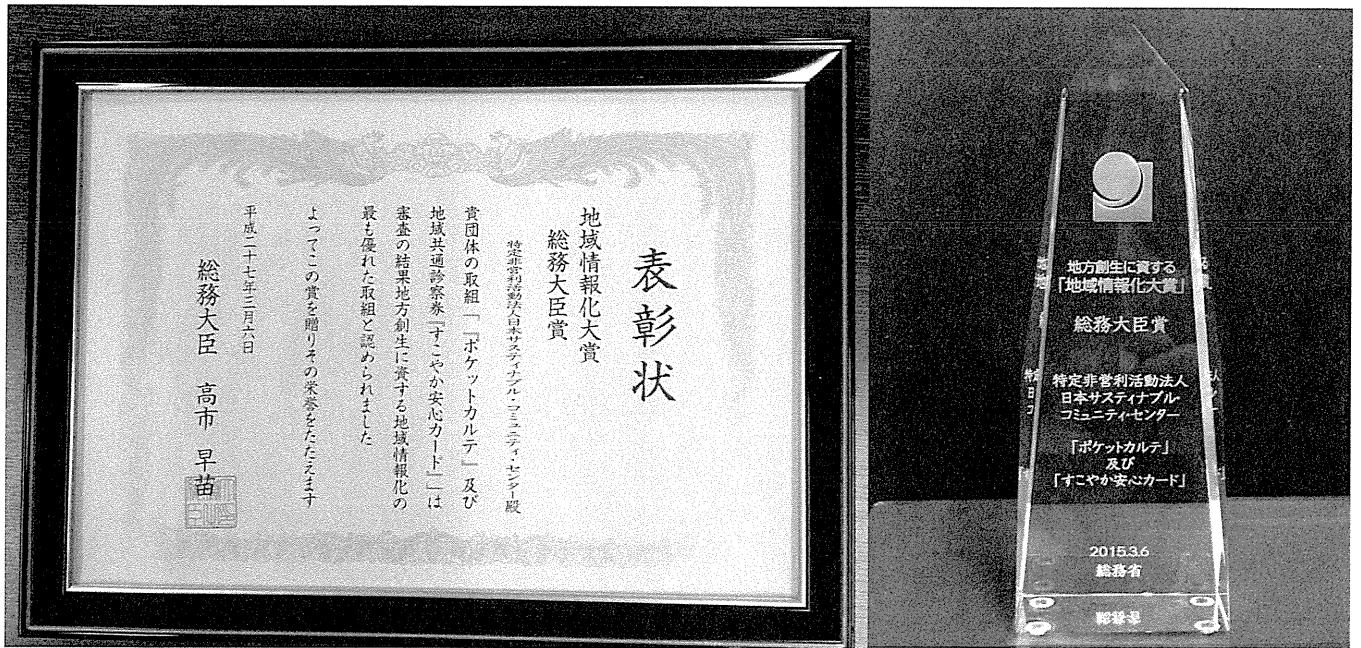 表彰状
地域情報化大賞
総務大臣賞
特定非営利活動法人日本サスティナブル・コミュニティ・センター殿
貴団体の取組「『ポケットカルテ』及び
地域共通診察券『すこやか安心カード』」は
審査の結果地方創生に資する地域情報化の
最も優れた取組と認められました
よってこの賞を贈りその栄誉をたたえます
平成二十七年三月六日
総務大臣 高市 早苗
地方創生に資する
「地域情報化大賞」
総務大臣賞
特定非営利活動法人
日本サスティナブル・
コミュニティ・センター
「ポケットカルテ」
及び
「すこやか安心カード」
2015.3.6
総務省